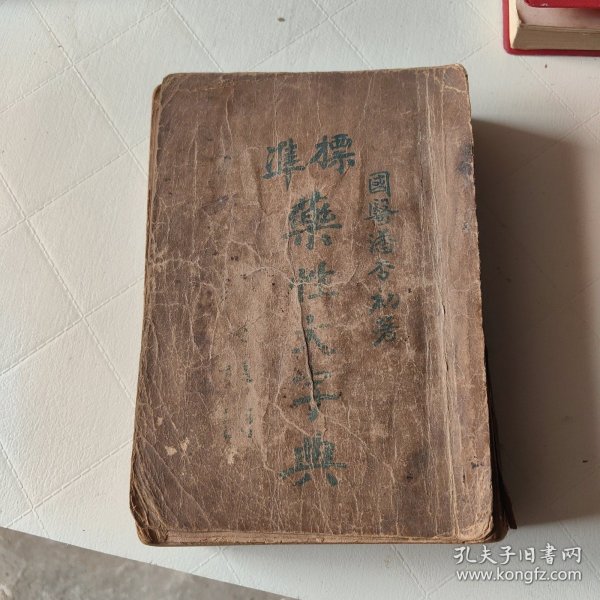 標準
藥性大字典
國醫潘杏初著
孔夫子旧书网
www.kongfz.com